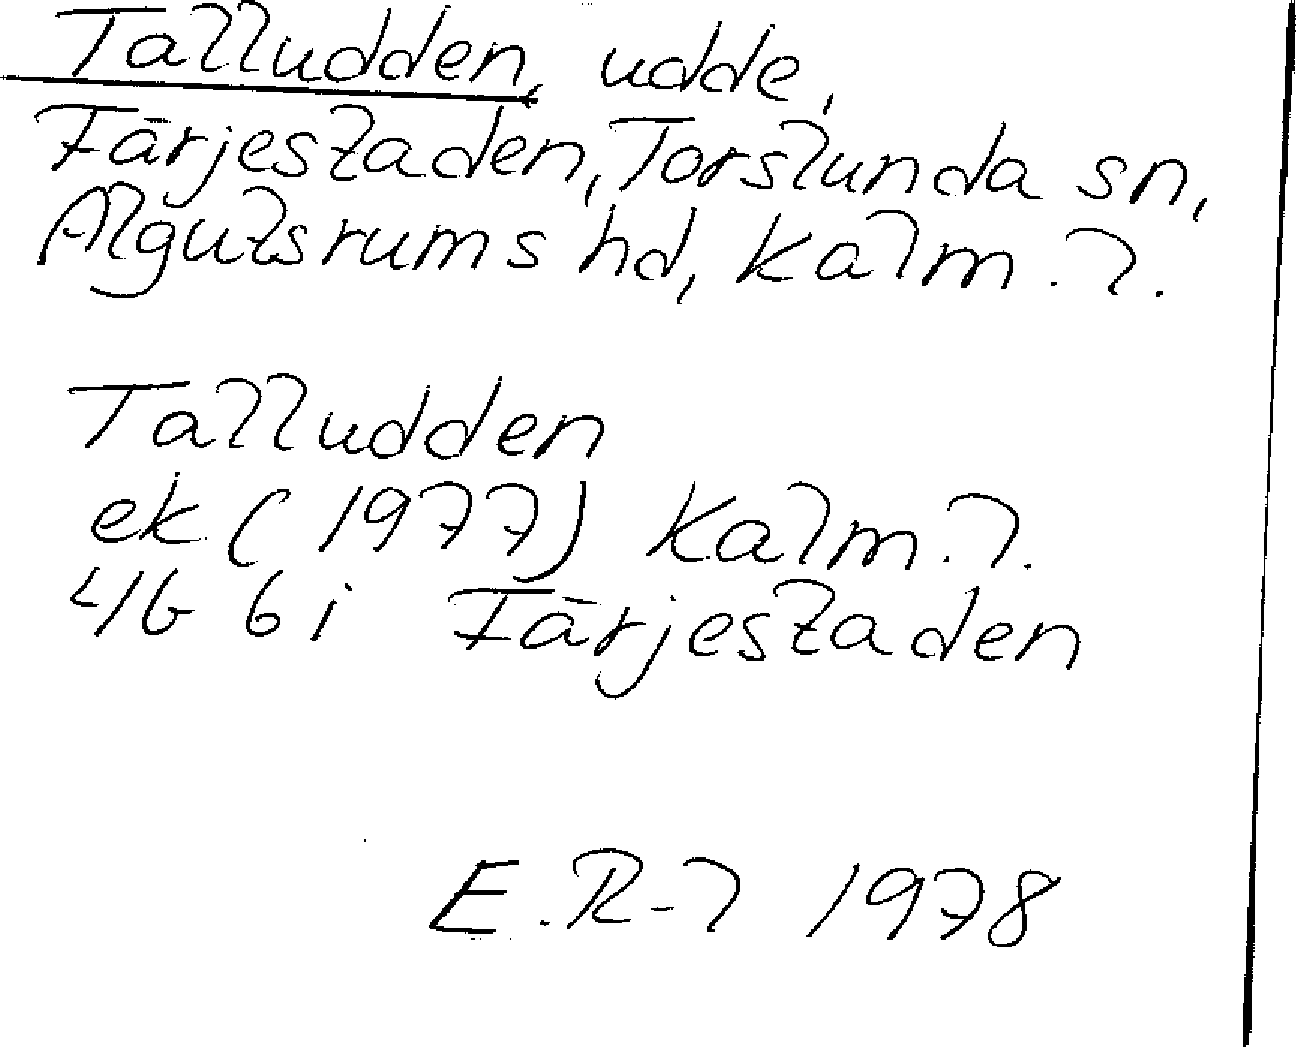 Talludden, udde,
Färjestaden, Torslunda sn,
Algutsrums hd, Kalm. l.
Talludden
ek (1977) Kalm. l.
4G 6i Färjestaden
E.R-l 1978